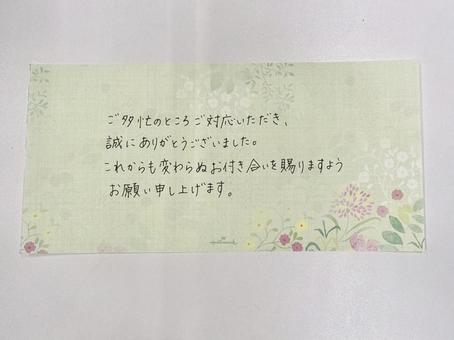 ご多忙のところご対応いただき、
誠にありがとうございました。
これからも変わらぬお付き合いを賜りますよう
お願い申し上げます。